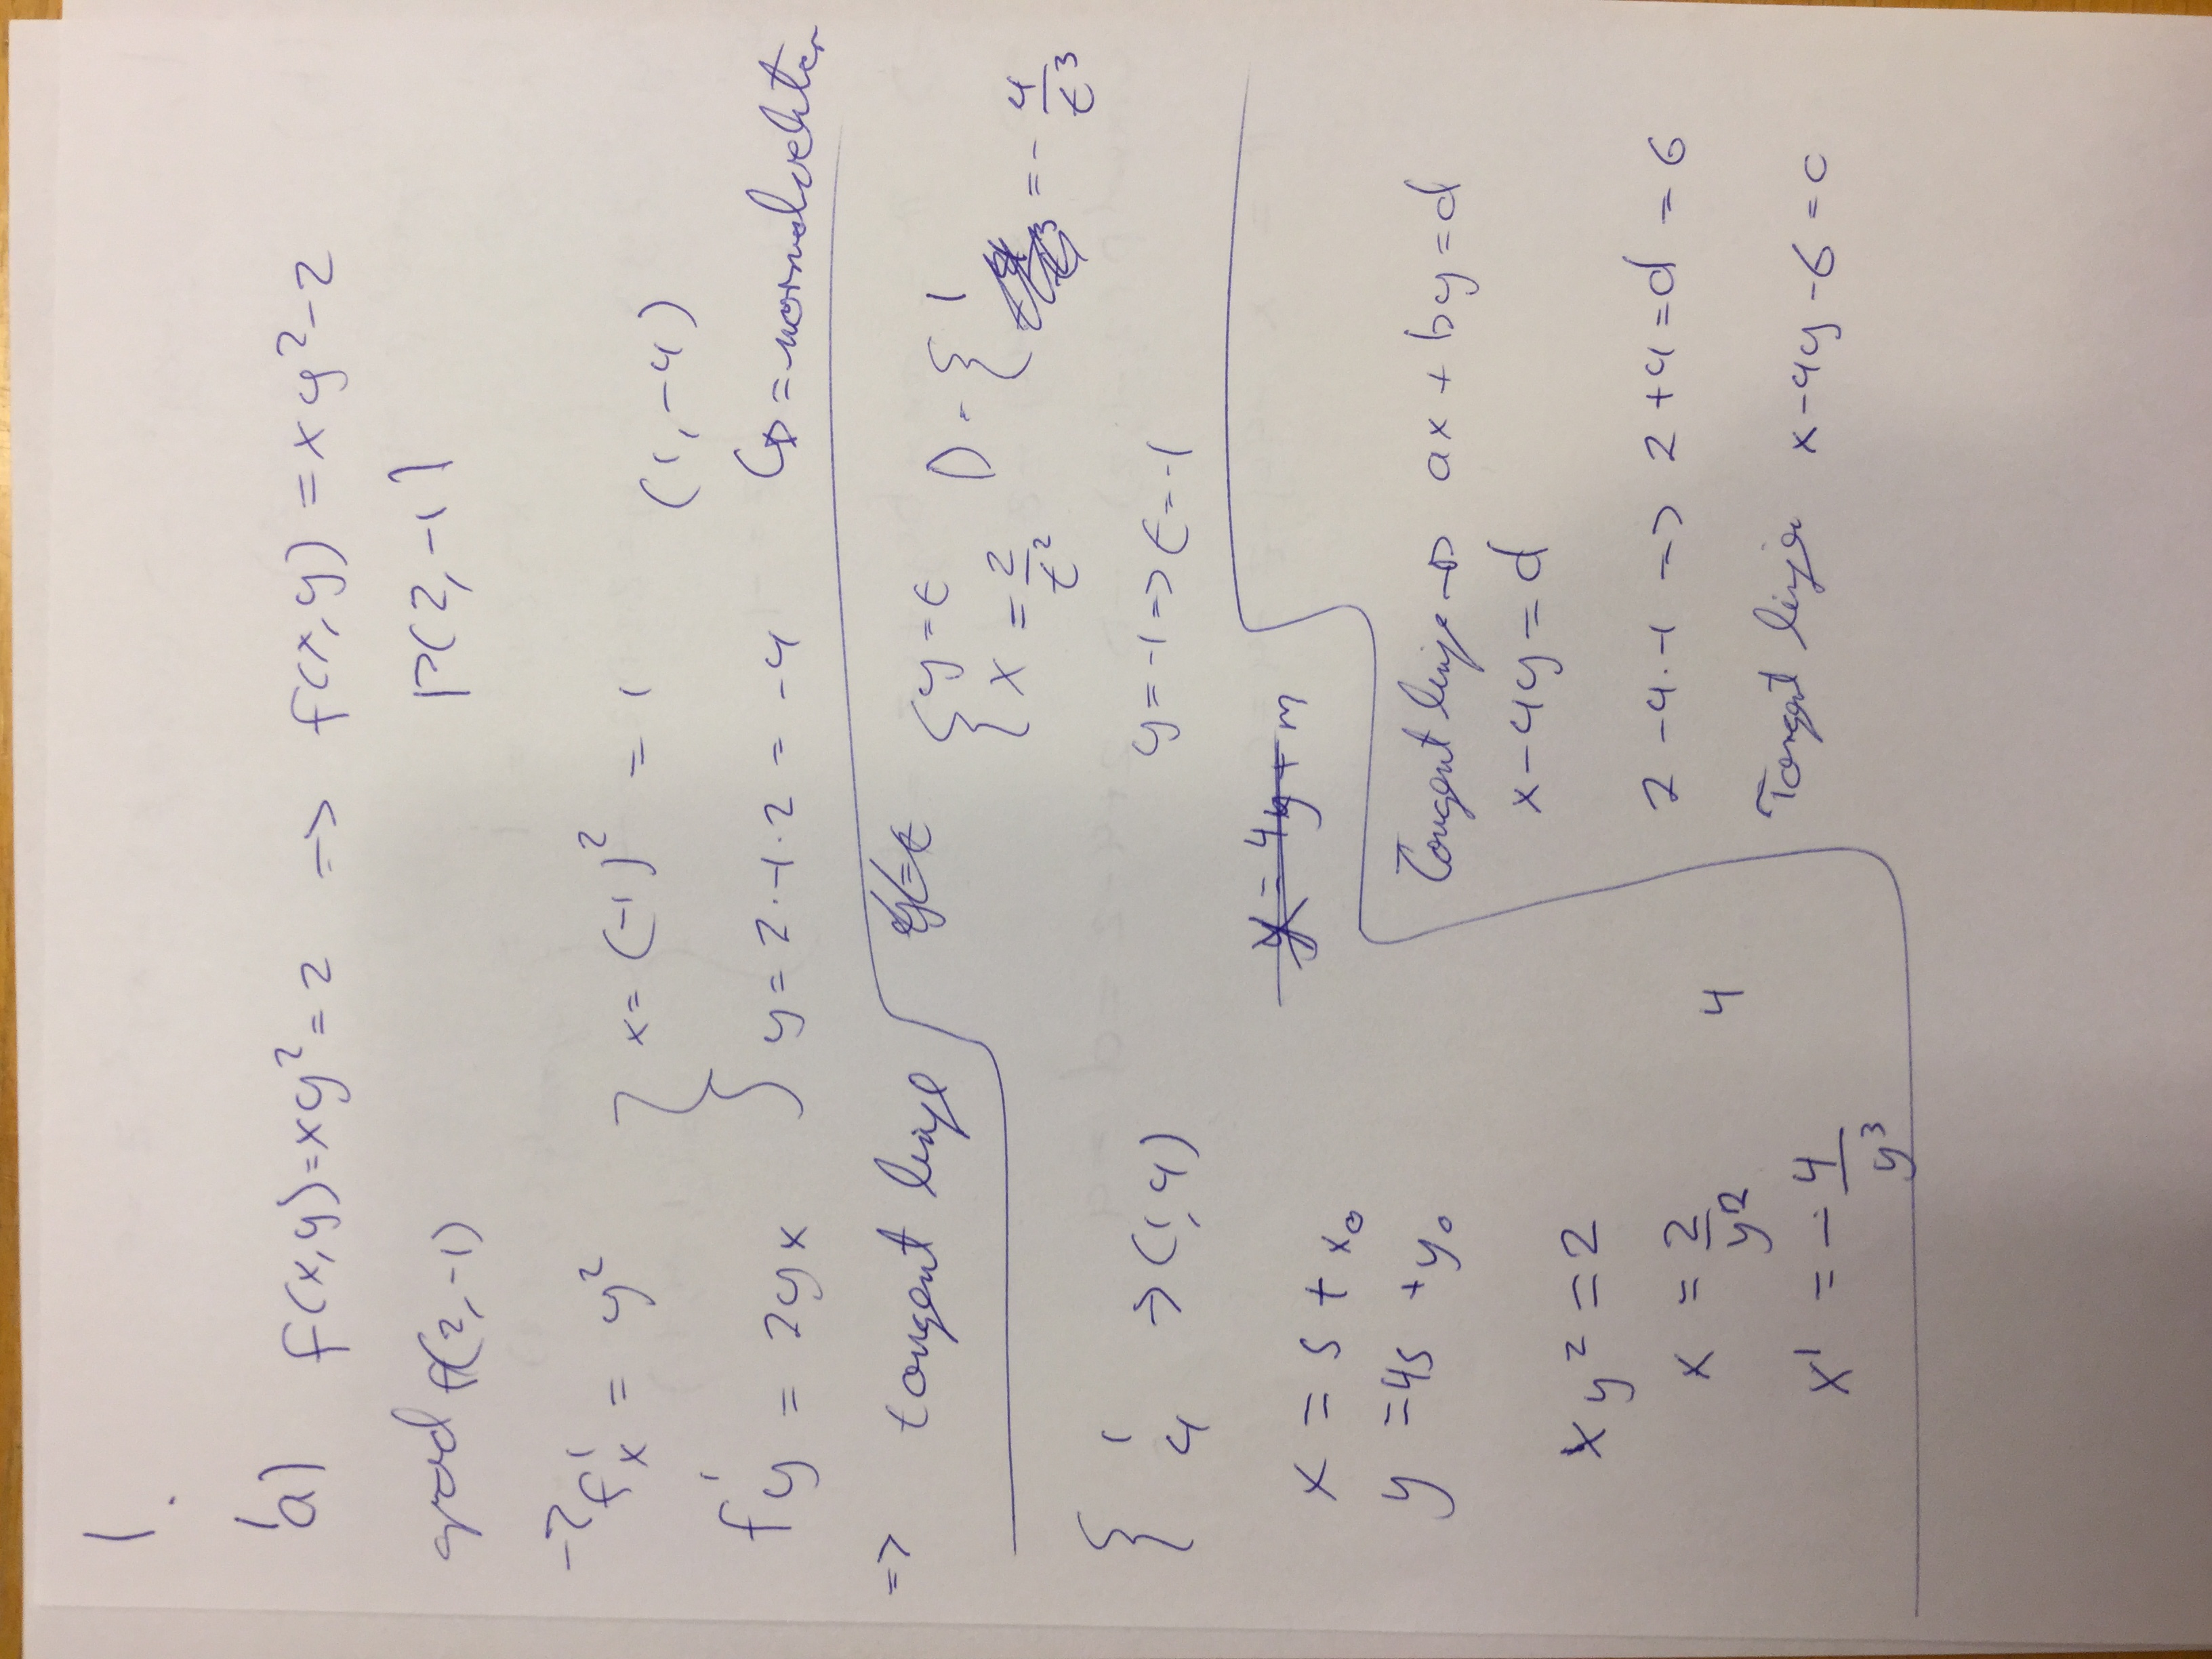 1.
a) f(x,y)=xy²=2 => f(x,y) = xy²-2
grad f(2,-1) P(2,-1)
-> f'x = y² } x = (-1)² = 1 (1,-4)
f'y = 2yx } y = 2·-1·2 = -4 = normalvektor
=> tangent linje
{ y=t
{ x = 2/t²
D = { 1
= -4/t³
{ 1
4 -> (1,4)
y=-1 => t=-1
y = 4y + m
x = s + x₀
y = 4s + y₀
xy² = 2
x = 2/y²
4
x' = -4/y³
Tangent linje -> ax + by = d
x-4y = d
2-4·-1 => 2+4 = d = 6
Tangent linje x-4y-6=0